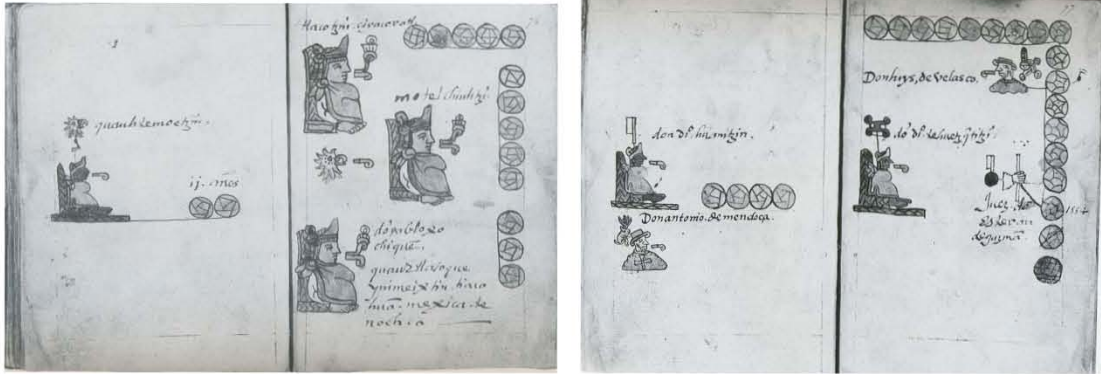 quauhtemoctzin.
ij. años
76
tlacotzin. çivacovatl
motelchiuhtzin
dõ pablo xo
chiquẽ.
quauhtlatoque
mexica. te
noch. ca
77
don dº huanitzin.
Don antonio. de mendoça.
Don luys, de velasco.
dõ dº tehuetzqtitzin.
Juez. dõ
estevan
deguzmã.
1554